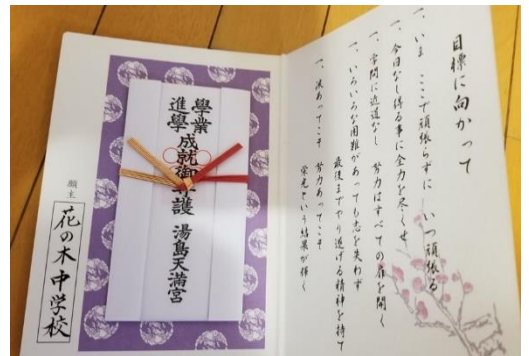 目標に向かって
一、いま ここで頑張らずに いつ頑張る
一、今日なし得る事に全力を尽くせ
一、学問に近道なし 努力はすべての扉を開く
一、いろいろな困難があっても志を失わず
最後までやり遂げる精神を持て
一、涙あってこそ 努力あってこそ
栄光という結果が輝く
學業
進學
成就御守護 湯島天満宮
願主 花の木中学校